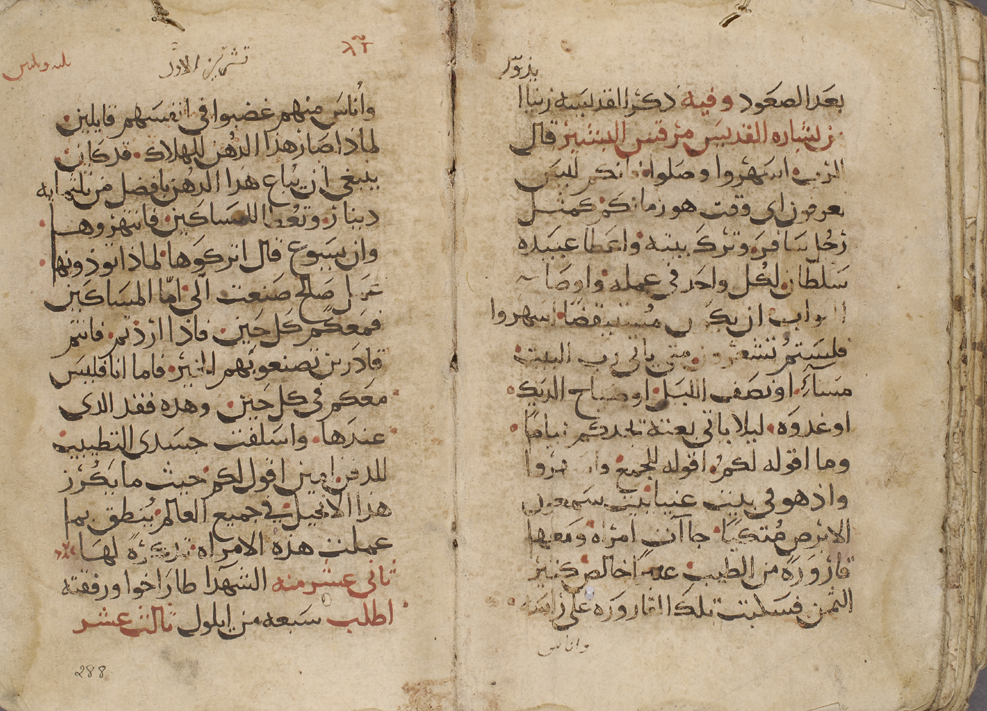 بعد الصعود وفيه ذكر القديسه زنيا ا
من بشاره القديس مرقس البشير قال
الرب اسهروا وصلوا فانكم لليس
تعرفون اى وقت هو زمانكم كمثل
رجل سافر وترك بيته واعطا عبيده
سلطان لكل واحد فى عمله واوصا
البواب ان يكون مستيقضا اسهروا
فلستم تشعرون متى ياتى رب البيت
مساءً او نصف الليل او صياح الديك
او غدوه ليلا ياتى بغته تجدكم نياما
وما اقوله لكم اقوله للجميع واسهروا
واذ هو فى بيت عنيا بيت سمعون
الابرص متكيا جاآت امراه ومعها
قاروره من الطيب خالص كثير
الثمن فسكبت تلك القاروره على راسه
واناس
تشرين الاول
واناس منهم غضبوا فى انفسهم قايلين
لماذا صار هذا الدهن للهلاك قد كان
ينبغى ان يباع هذا الدهن بافضل من ثلثمايه
دينار وتعطا للمساكين فانتهروها
وان يسوع قال اتركوها لماذا توذونها
عمل صالح صنعت الى اما المساكين
فمعكم كل حين فاذا اردتم فانتم
قادرين تصنعو بهم الخير فاما انا فليس
معكم فى كل حين وهذه فقد الذى
عندها واسلفت جسدى التطييب
للدفن امين اقول لكم حيث ما يكرز
هذا الانجيل فى جميع العالم ينطق بما
عملت هذه الامراه تذكرةً لها
ثانى عشر منه الشهدا طاراخوا ورفقته
اطلب سبعه من ايلول ثالث عشر
288